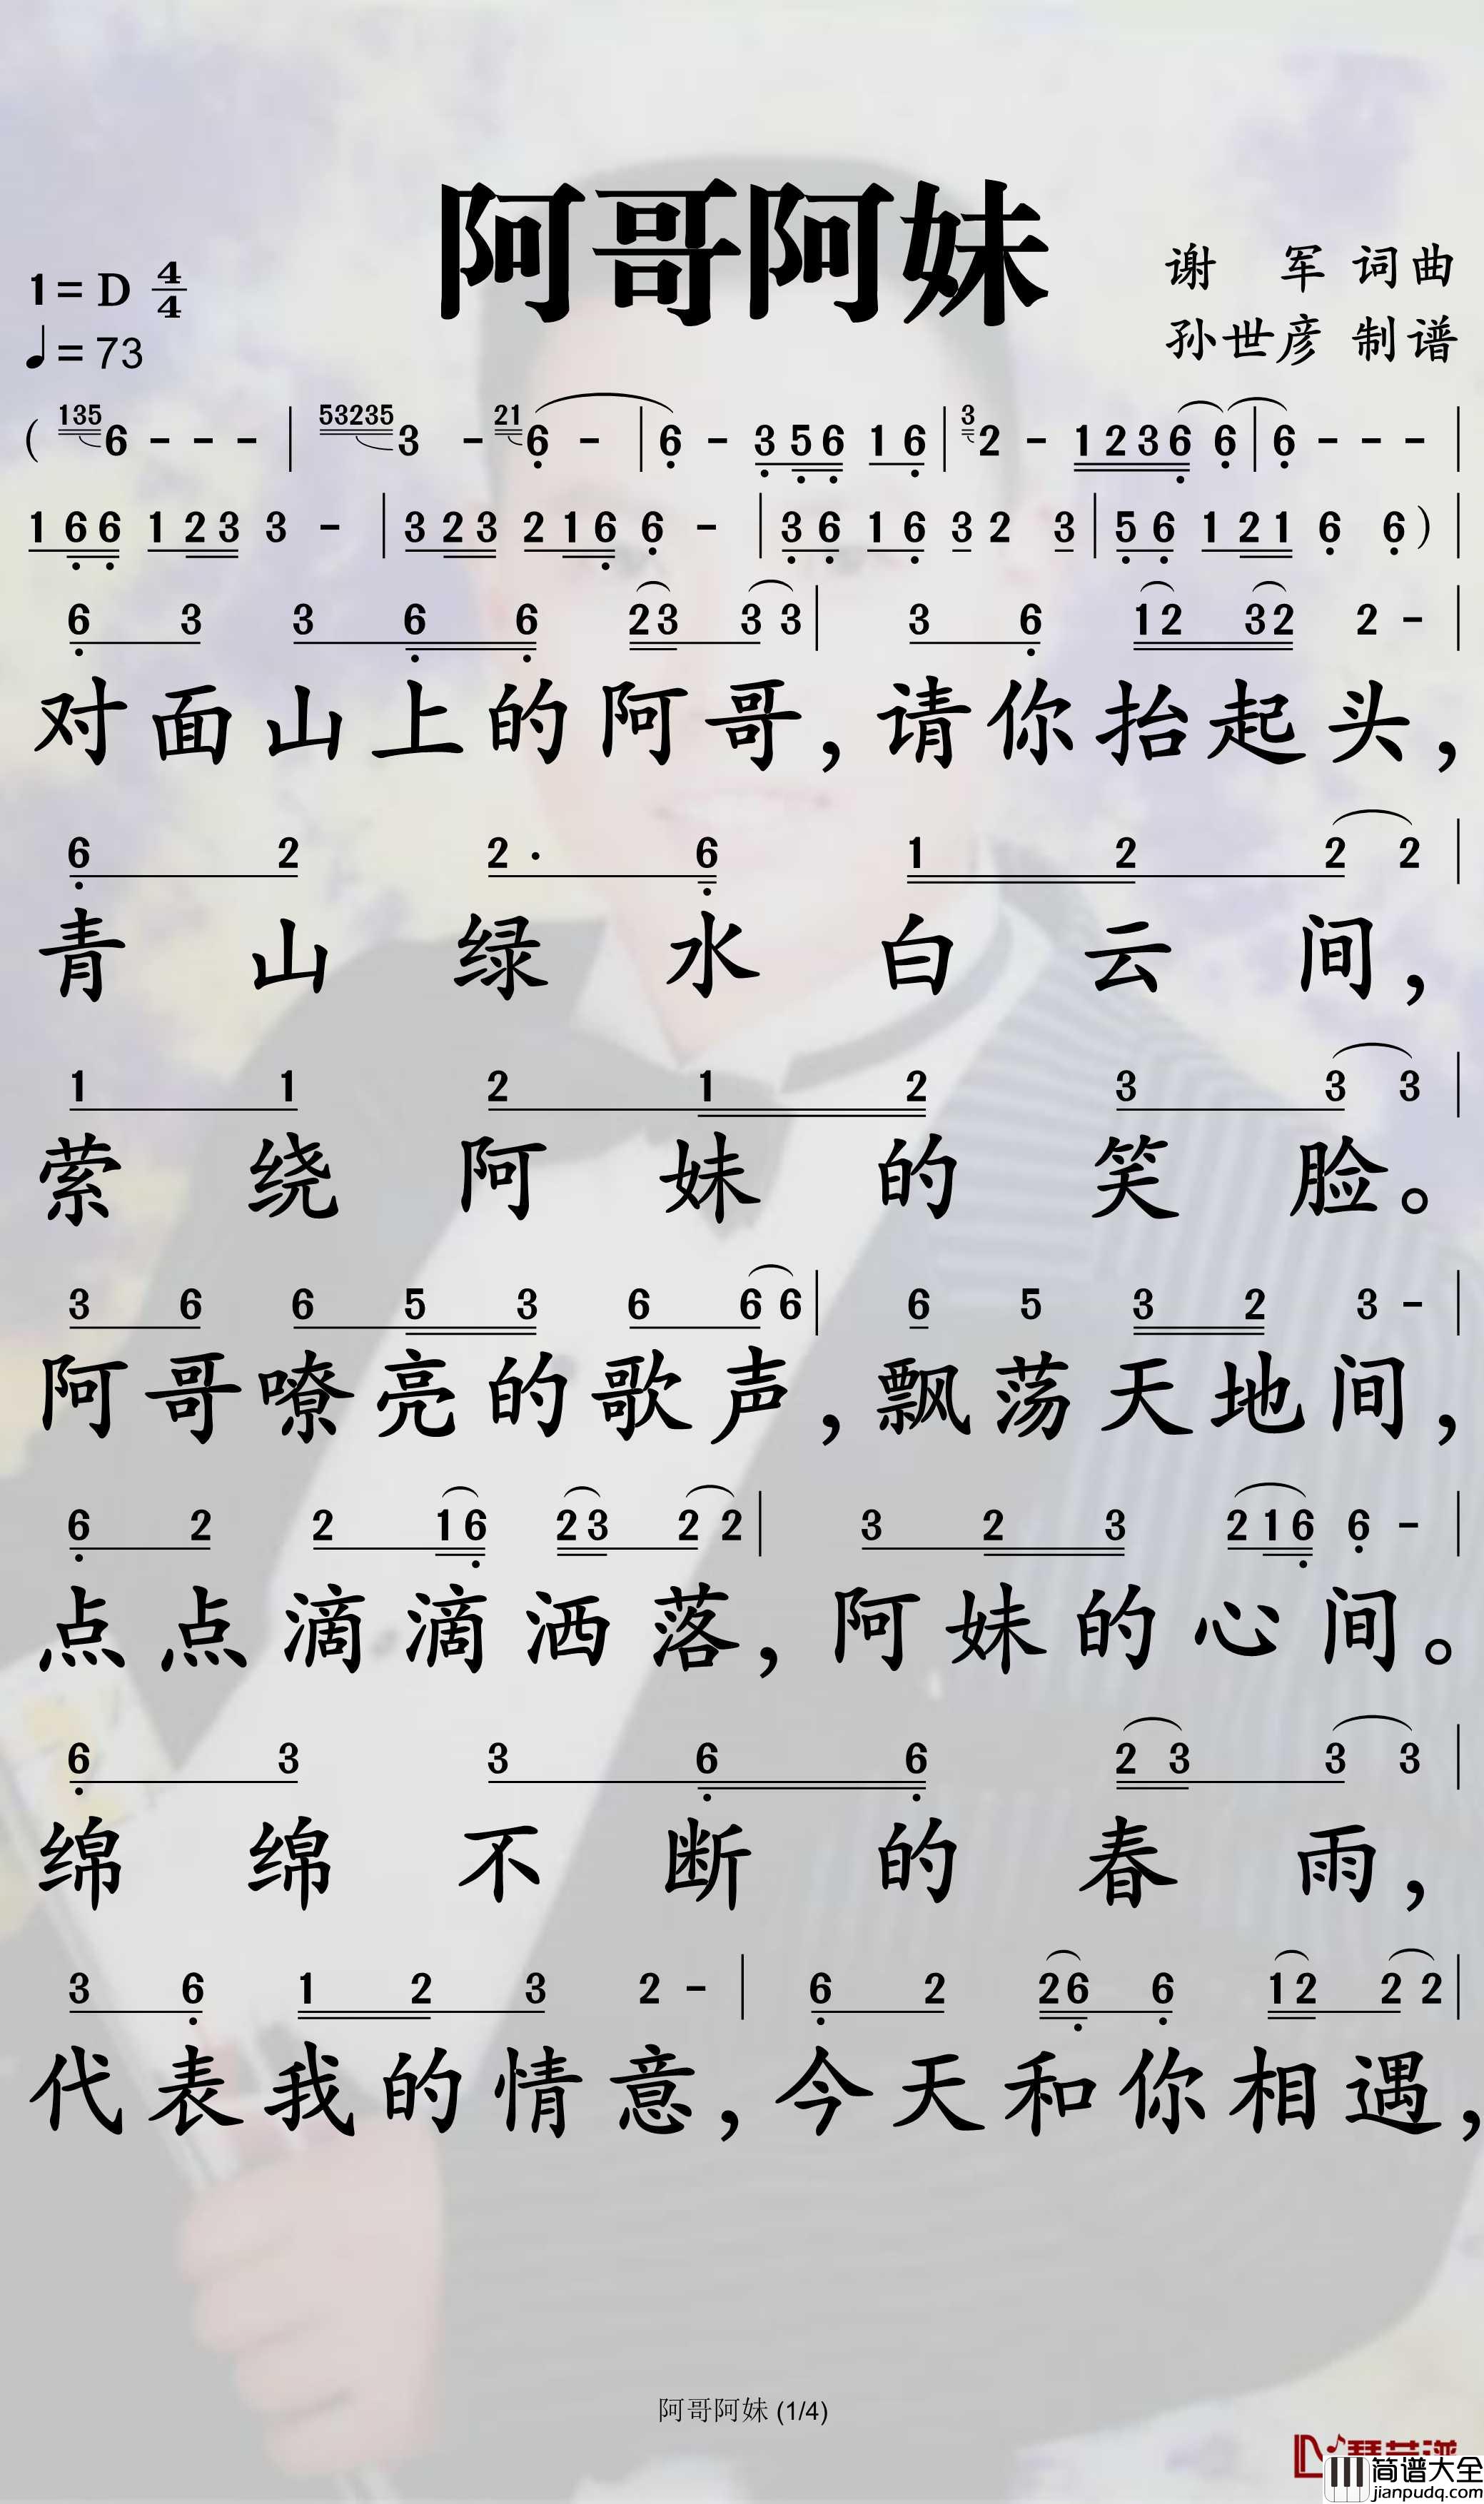 阿哥阿妹
1=D 4/4
♩=73
谢 军 词曲
孙世彦 制谱
( 135 6 - - - | 53235 3 - 21 6 - | 6 - 3 5 6 1 6 | 3 2 - 1 2 3 6 6 | 6 - - - |
1 6 6 1 2 3 3 - | 3 2 3 2 1 6 6 - | 3 6 1 6 3 2 3 | 5 6 1 2 1 6 6 ) |
6 3 3 6 6 2 3 3 3 | 3 6 1 2 3 2 2 - |
对面山上的阿哥，请你抬起头，
6 2 2 · 6 1 2 2 2 |
青山绿水白云间，
1 1 2 1 2 3 3 3 |
萦绕阿妹的笑脸。
3 6 6 5 3 6 6 6 | 6 5 3 2 3 - |
阿哥嘹亮的歌声，飘荡天地间，
6 2 2 1 6 2 3 2 2 | 3 2 3 2 1 6 6 - |
点点滴滴洒落，阿妹的心间。
6 3 3 6 6 2 3 3 3 |
绵绵不断的春雨，
3 6 1 2 3 2 - | 6 2 2 6 6 1 2 2 2 |
代表我的情意，今天和你相遇，
阿哥阿妹 (1/4)
简谱大全
jianpudq.com